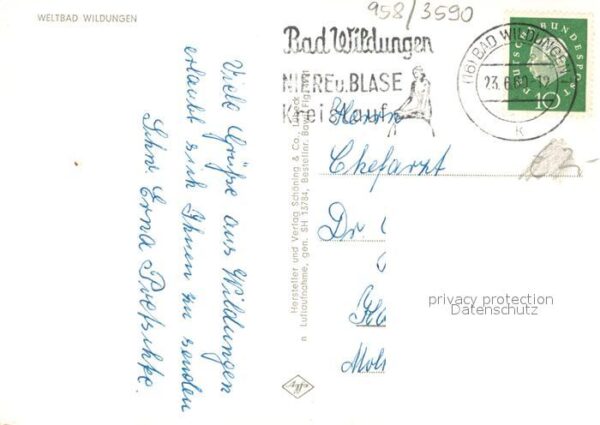 WELTBAD WILDUNGEN
958/3590
Bad Wildungen
NIERE u. BLASE
Kreislauf
(16) BAD WILDUNGEN
23.6.60.-12
k
DEUTSCHE BUNDESPOST
10
Viele Grüße aus Wildungen
erlaubt sich Ihnen zu senden
Schw. Erna
Hersteller und Verlag Schöning & Co., Lübeck
n Luftaufnahme, gen. SH 13784, Bestellnr. Bawi
Herrn
Chefarzt
Dr.
privacy protection
Datenschutz